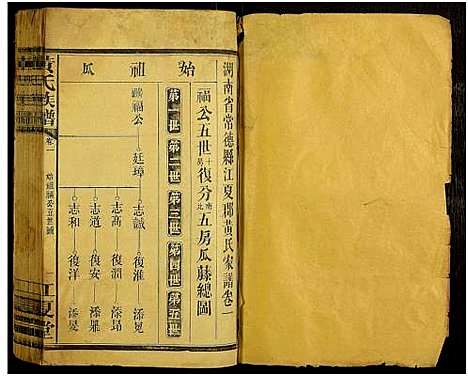 湖南省常德縣江夏郡黃氏家譜卷一
福公五世十男復分南北五房瓜藤總圖
始祖瓜
第一世
第二世
第三世
第四世
第五世
福公
廷璋
志誠
復淮
添冕
志高
復潤
添昂
志道
復安
志和
復洋
添晏
黃氏族譜
卷一
始祖福公五世圖
江夏堂